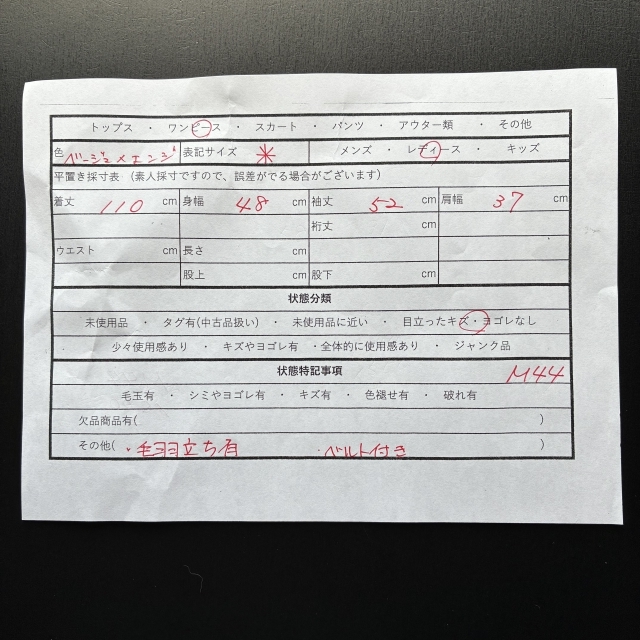 トップス ・ ワンピース ・ スカート ・ パンツ ・ アウター類 ・ その他
色 ベージュ×エンジ 表記サイズ ※ メンズ ・ レディース ・ キッズ
平置き採寸表 (素人採寸ですので、誤差がでる場合がございます)
着丈 110 cm 身幅 48 cm 袖丈 52 cm 肩幅 37 cm
裄丈 cm
ウエスト cm 長さ cm
股上 cm 股下 cm
状態分類
未使用品 ・ タグ有(中古品扱い) ・ 未使用品に近い ・ 目立ったキズ・ヨゴレなし
・ 少々使用感あり ・ キズやヨゴレ有 ・全体的に使用感あり ・ ジャンク品
状態特記事項 M44
毛玉有 ・ シミやヨゴレ有 ・ キズ有 ・ 色褪せ有 ・ 破れ有
欠品商品有( )
その他( ・毛羽立ち有 ・ベルト付き )